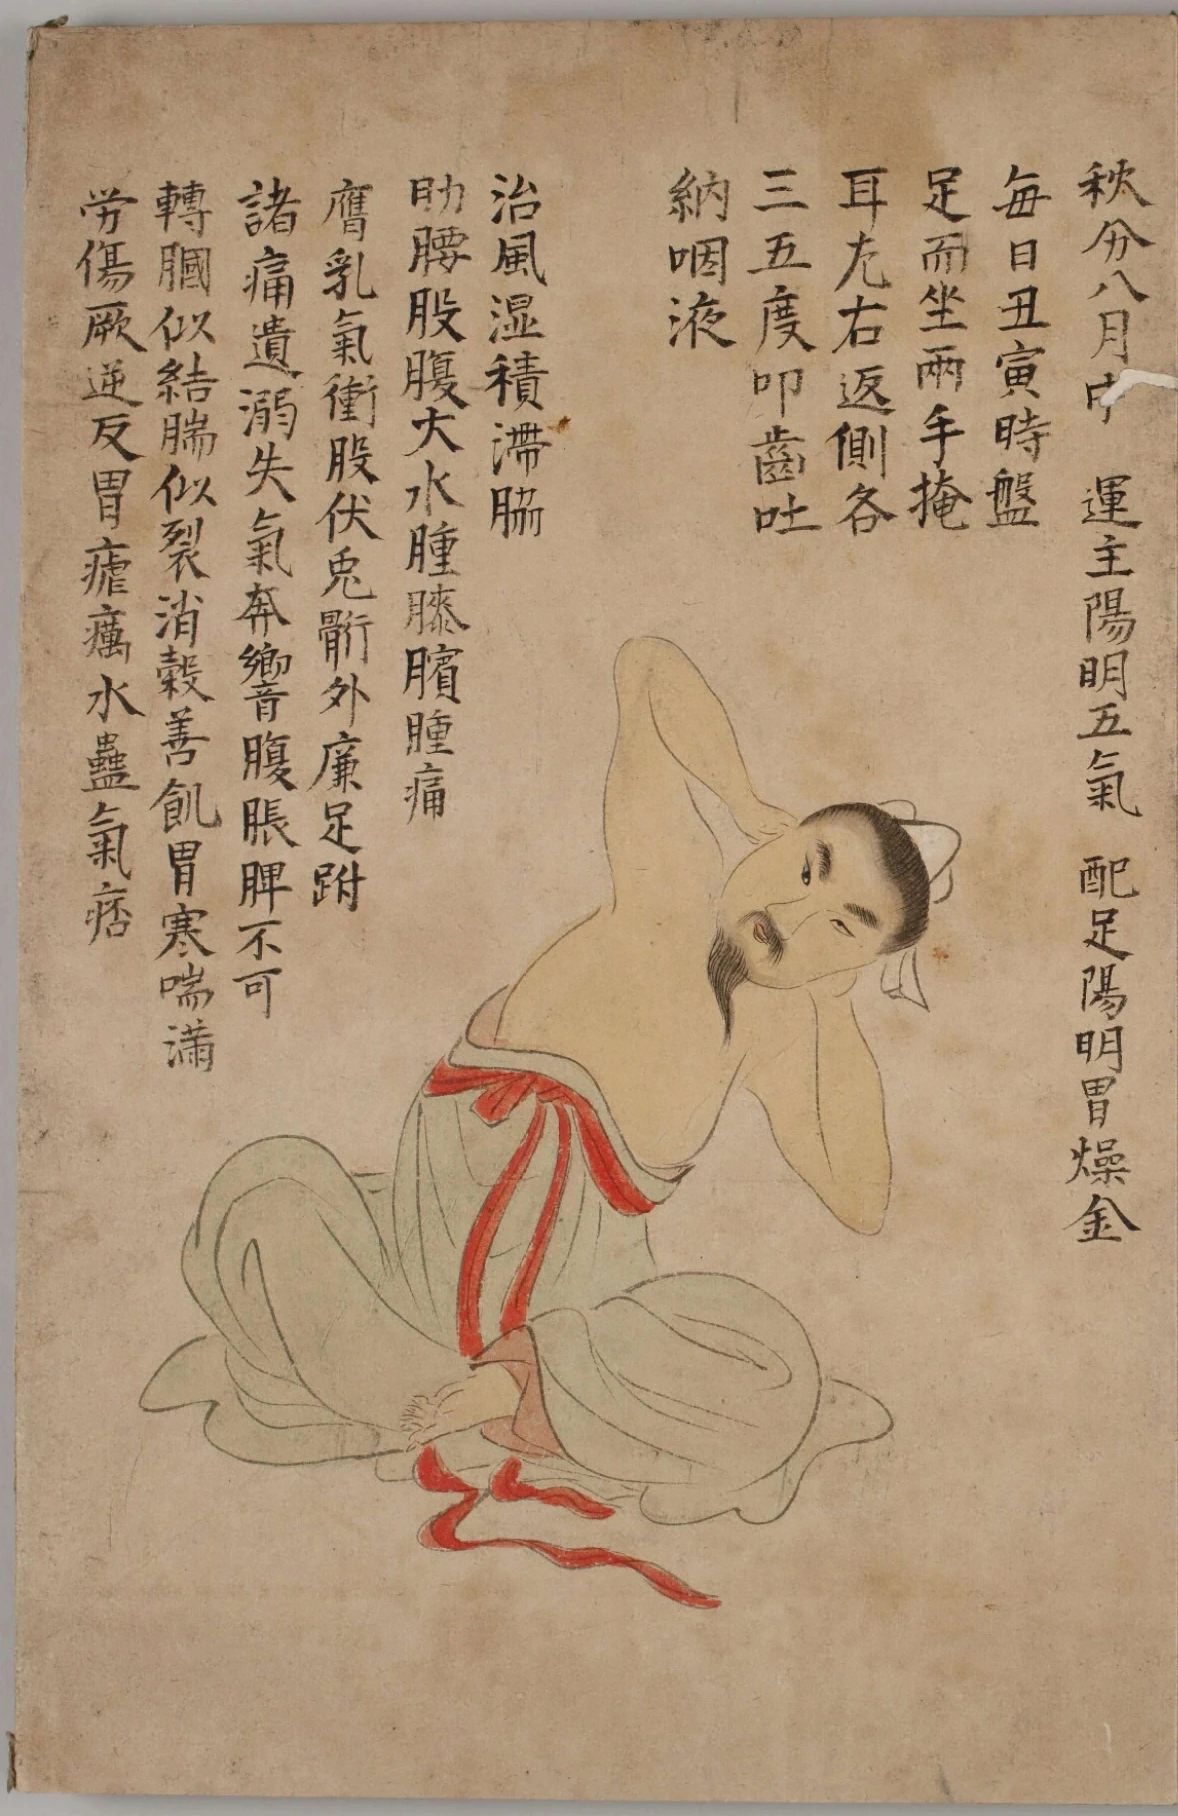 秋分八月中　運主陽明五氣　配足陽明胃燥金
每日丑寅時盤
足而坐兩手掩
耳左右返側各
三五度叩齒吐
納咽液
治風湿積滯脇
肋腰股腹大水腫膝臏腫痛
膺乳氣衝股伏兎骭外廉足跗
諸痛遺溺失氣奔響腹脹脾不可
轉膕似結腨似裂消穀善飢胃寒喘滿
労傷厥逆反胃瘧癘水蠱氣痞